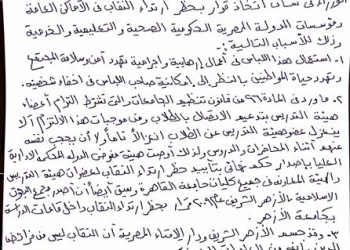 الوزراء فى شأن اتخاذ قرار بحظر ارتداء النقاب فى الأماكن العامة
ومؤسسات الدولة المصرية الحكومية الصحية والتعليمية والخدمية
وذلك للأسباب التالية :-
١- استعمال هذا اللباس فى أعمال إرهابية وإجرامية تهدد أمن وسلامة المجتمع
وتهدد حياة المواطنين بالنظر إلى امكانية صاحب اللباس فى اخفاء شخصيته.
٢- ما ورد فى المادة ٩٦ من قانون تنظيم الجامعات والتى تشترط التزام أعضاء
هيئة التدريس بتدعيم الاتصال بالطلاب ومن موجبات هذا الالتزام ألا
ينعزل عضو هيئة التدريس عن الطلاب انعزالاً تاماً ولا أن يحجب نفسه
عنهم أثناء المحاضرات والدروس ولذلك أوصت هيئة مفوضى الدولة للمحكمة الإدارية
العليا بإصدار حكم نهائى بتأييد حظر ارتداء النقاب لعضوات هيئة التدريس
والهيئة المعاونة فى جميع كليات جامعة القاهرة وسبق أيضاً أن أصدر مجمع البحوث
الإسلامية بالأزهر الشريف قرار بحظر ارتداء النقاب داخل قاعات الدراسة
بجامعة الأزهر.
٣- وقد حسم الأزهر الشريف ودار الافتاء المصرية أن النقاب ليس من فرائض